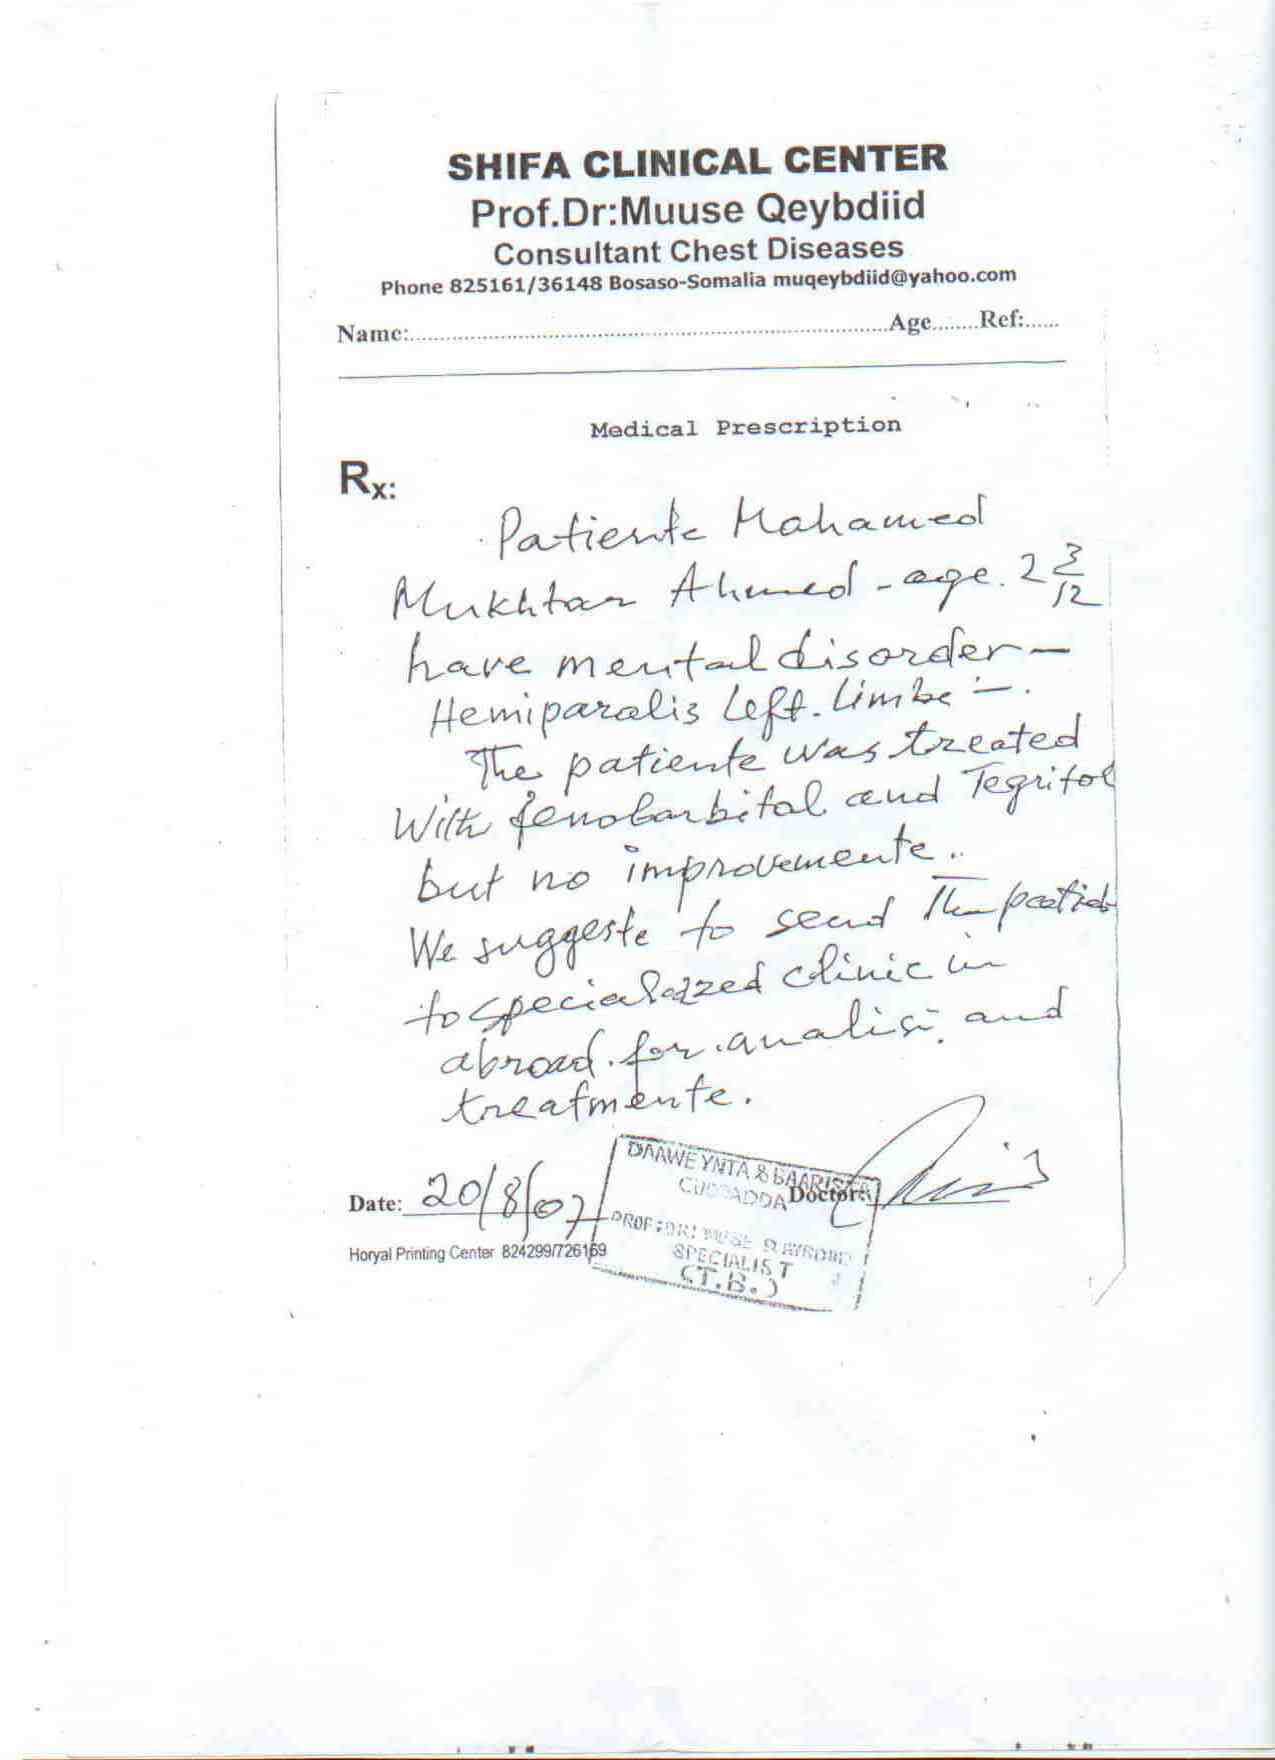 SHIFA CLINICAL CENTER
Prof.Dr:Muuse Qeybdiid
Consultant Chest Diseases
Phone 825161/36148 Bosaso-Somalia muqeybdiid@yahoo.com
Name:..........Age........Ref:......
Medical Prescription
Rx:
Patiente Mahamed
Mukhtar Ahmed - age. 2 3/12
have mental disorder -
Hemiparalis left. limbe -.
The patiente was treated
With fenobarbital and Tegritol
but no improvemente..
We suggeste to send The patient
to specialozzed clinic in
abroad. for. analisi. and
treatmente.
DAAWEYNTA & BAARISTA
CUDURADDA
Date: 20/8/07 Doctor:
PROF:DR: MUSE QAYBDIID
Horyal Printing Center 824299/726169
SPECIALIST
(T.B.)